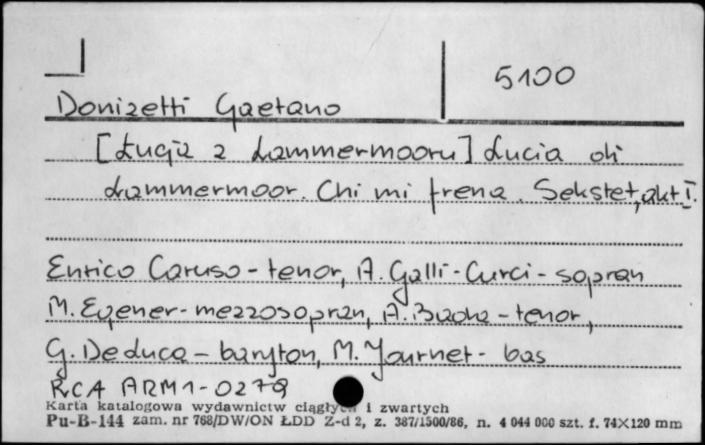 5100
Donizetti Gaetano
[Łucja z Lammermooru] Lucia di
Lammermoor. Chi mi frena. Sekstet, akt I.
Enrico Caruso - tenor, A. Galli-Curci - sopran
M. Egener - mezzosopran, A. Bada - tenor,
G. De Luca - baryton, M. Journet - bas
RCA ARM1-0279
Karta katalogowa wydawnictw ciągłych i zwartych
Pu-B-144 zam. nr 768/DW/ON ŁDD Z-d 2, z. 387/1500/86, n. 4 044 000 szt. f. 74×120 mm